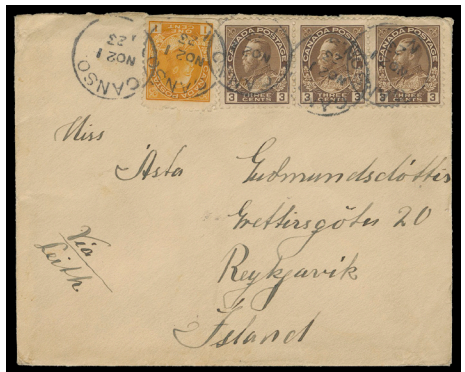 CANSO
NO 21
23
CANADA POSTAGE
3 THREE CENTS 3
CANADA POSTAGE
3 THREE CENTS 3
CANADA POSTAGE
3 THREE CENTS 3
Miss
Ásta Guðmundsdóttir
Grettirsgötu 20
Reykjavik
Ísland
Via
Leith.